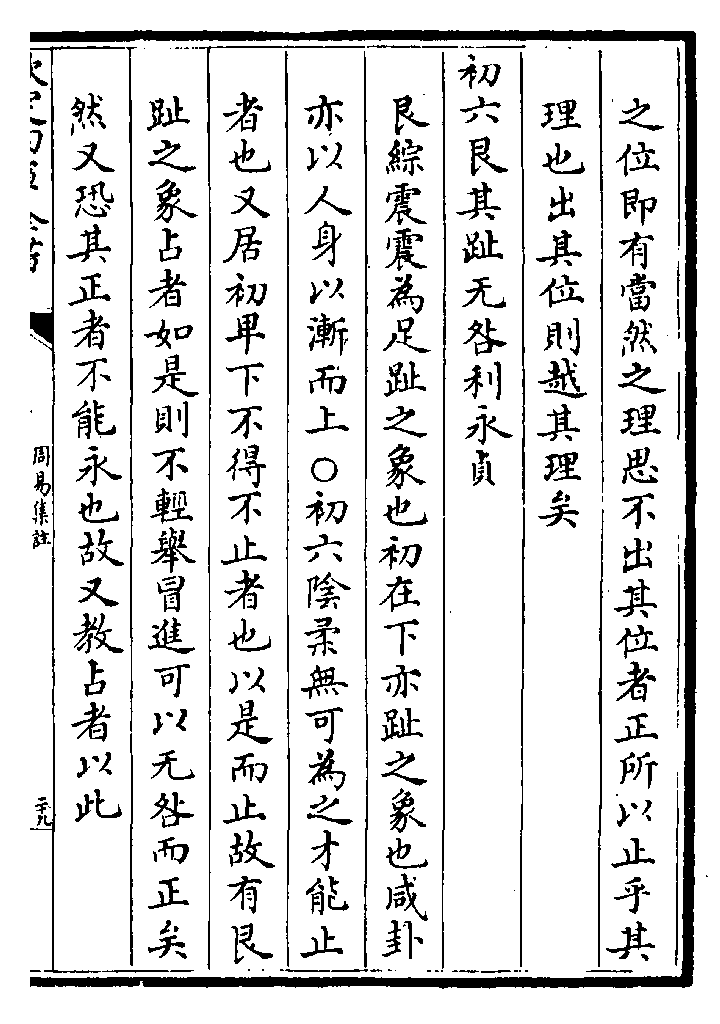 之位即有當然之理思不出其位者正所以止乎其
理也出其位則越其理矣
初六艮其趾无咎利永貞
艮綜震震為足趾之象也初在下亦趾之象也咸卦
亦以人身以漸而上○初六陰柔無可為之才能止
者也又居初卑下不得不止者也以是而止故有艮
趾之象占者如是則不輕舉冒進可以无咎而正矣
然又恐其正者不能永也故又教占者以此
周易集註
二十九